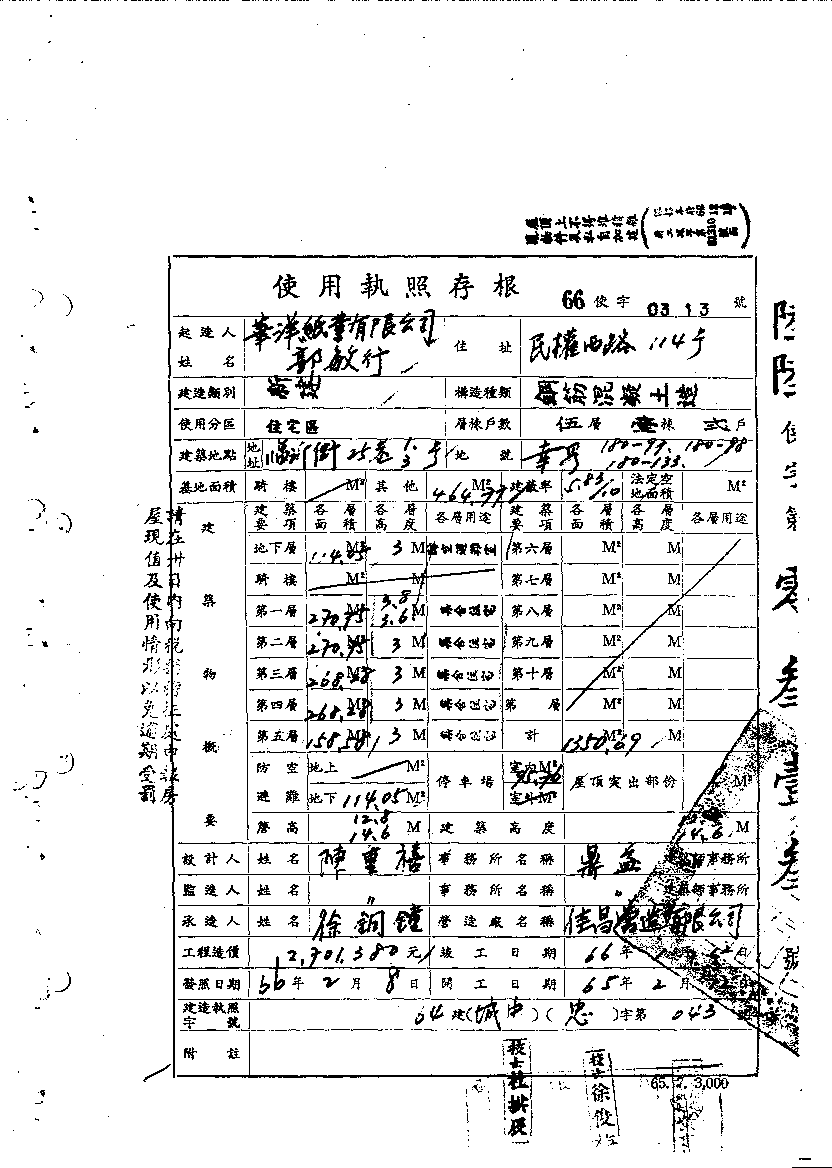 使用執照存根 66 使字 0313 號
起造人姓名 華洋紙業有限公司 郭敏行 住址 民權西路 114号
建造類別 新建 構造種類 鋼筋混凝土造
使用分區 住宅區 層棟戶數 伍層 壹棟 弍戶
建築地點 地址 臨沂街 25巷 1. 3号 地號 幸号 180-97. 180-98 180-133.
基地面積 騎樓 M² 其他 M² 建蔽率 5.83/10 法定空地面積 M²
建築物概要
建築要項 各層面積 各層高度 各層用途 建築要項 各層面積 各層高度 各層用途
地下層 114.05 M² 3 M 第六層 M² M
騎樓 M² M 第七層 M² M
第一層 270.75 M² 3.8 3.6 M 第八層 M² M
第二層 270.75 M² 3 M 第九層 M² M
第三層 268.28 M² 3 M 第十層 M² M
第四層 268.28 M² 3 M 第 層 M² M
第五層 158.58 M² 3 M 計 1350.69 M²
防空避難 地上 M² 停車場 室內 M² 室外 M² 屋頂突出部份 M²
地下 114.05 M²
簷高 12.8 14.6 M 建築高度 14.6 M
設計人 姓名 陳重禧 事務所名稱 鼎益 建築師事務所
監造人 姓名 〃 事務所名稱 〃 建築師事務所
承造人 姓名 徐銅鐘 營造廠名稱 佳昌營造有限公司
工程造價 2,701,380 元 竣工日期 66年
發照日期 66年 2月 8日 開工日期 65年 2月
建造執照字號 64建(城中)(忠)字第 043
附註
65.7.3,000
請在卅日內向稅
屋現值及使用情形以免逾期受罰
技士
技士徐俊
使字第零叁壹叁號